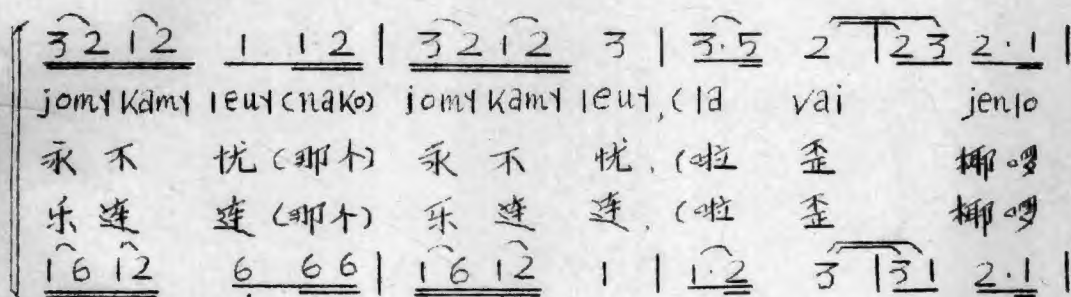 3 2 1 2 1 1·2 | 3 2 1 2 3 | 3·5 2 | 2 3 2·1 |
jomy kamy leuy (nako) jomy kamy leuy, (la vai jenlo
永 不 忧 (那个) 永 不 忧, (啦 歪 椰啰
乐 连 连 (那个) 乐 连 连, (啦 歪 椰啰
1 6 1 2 6 6 6 | 1 6 1 2 1 | 1·2 3 | 3 1 2·1 |